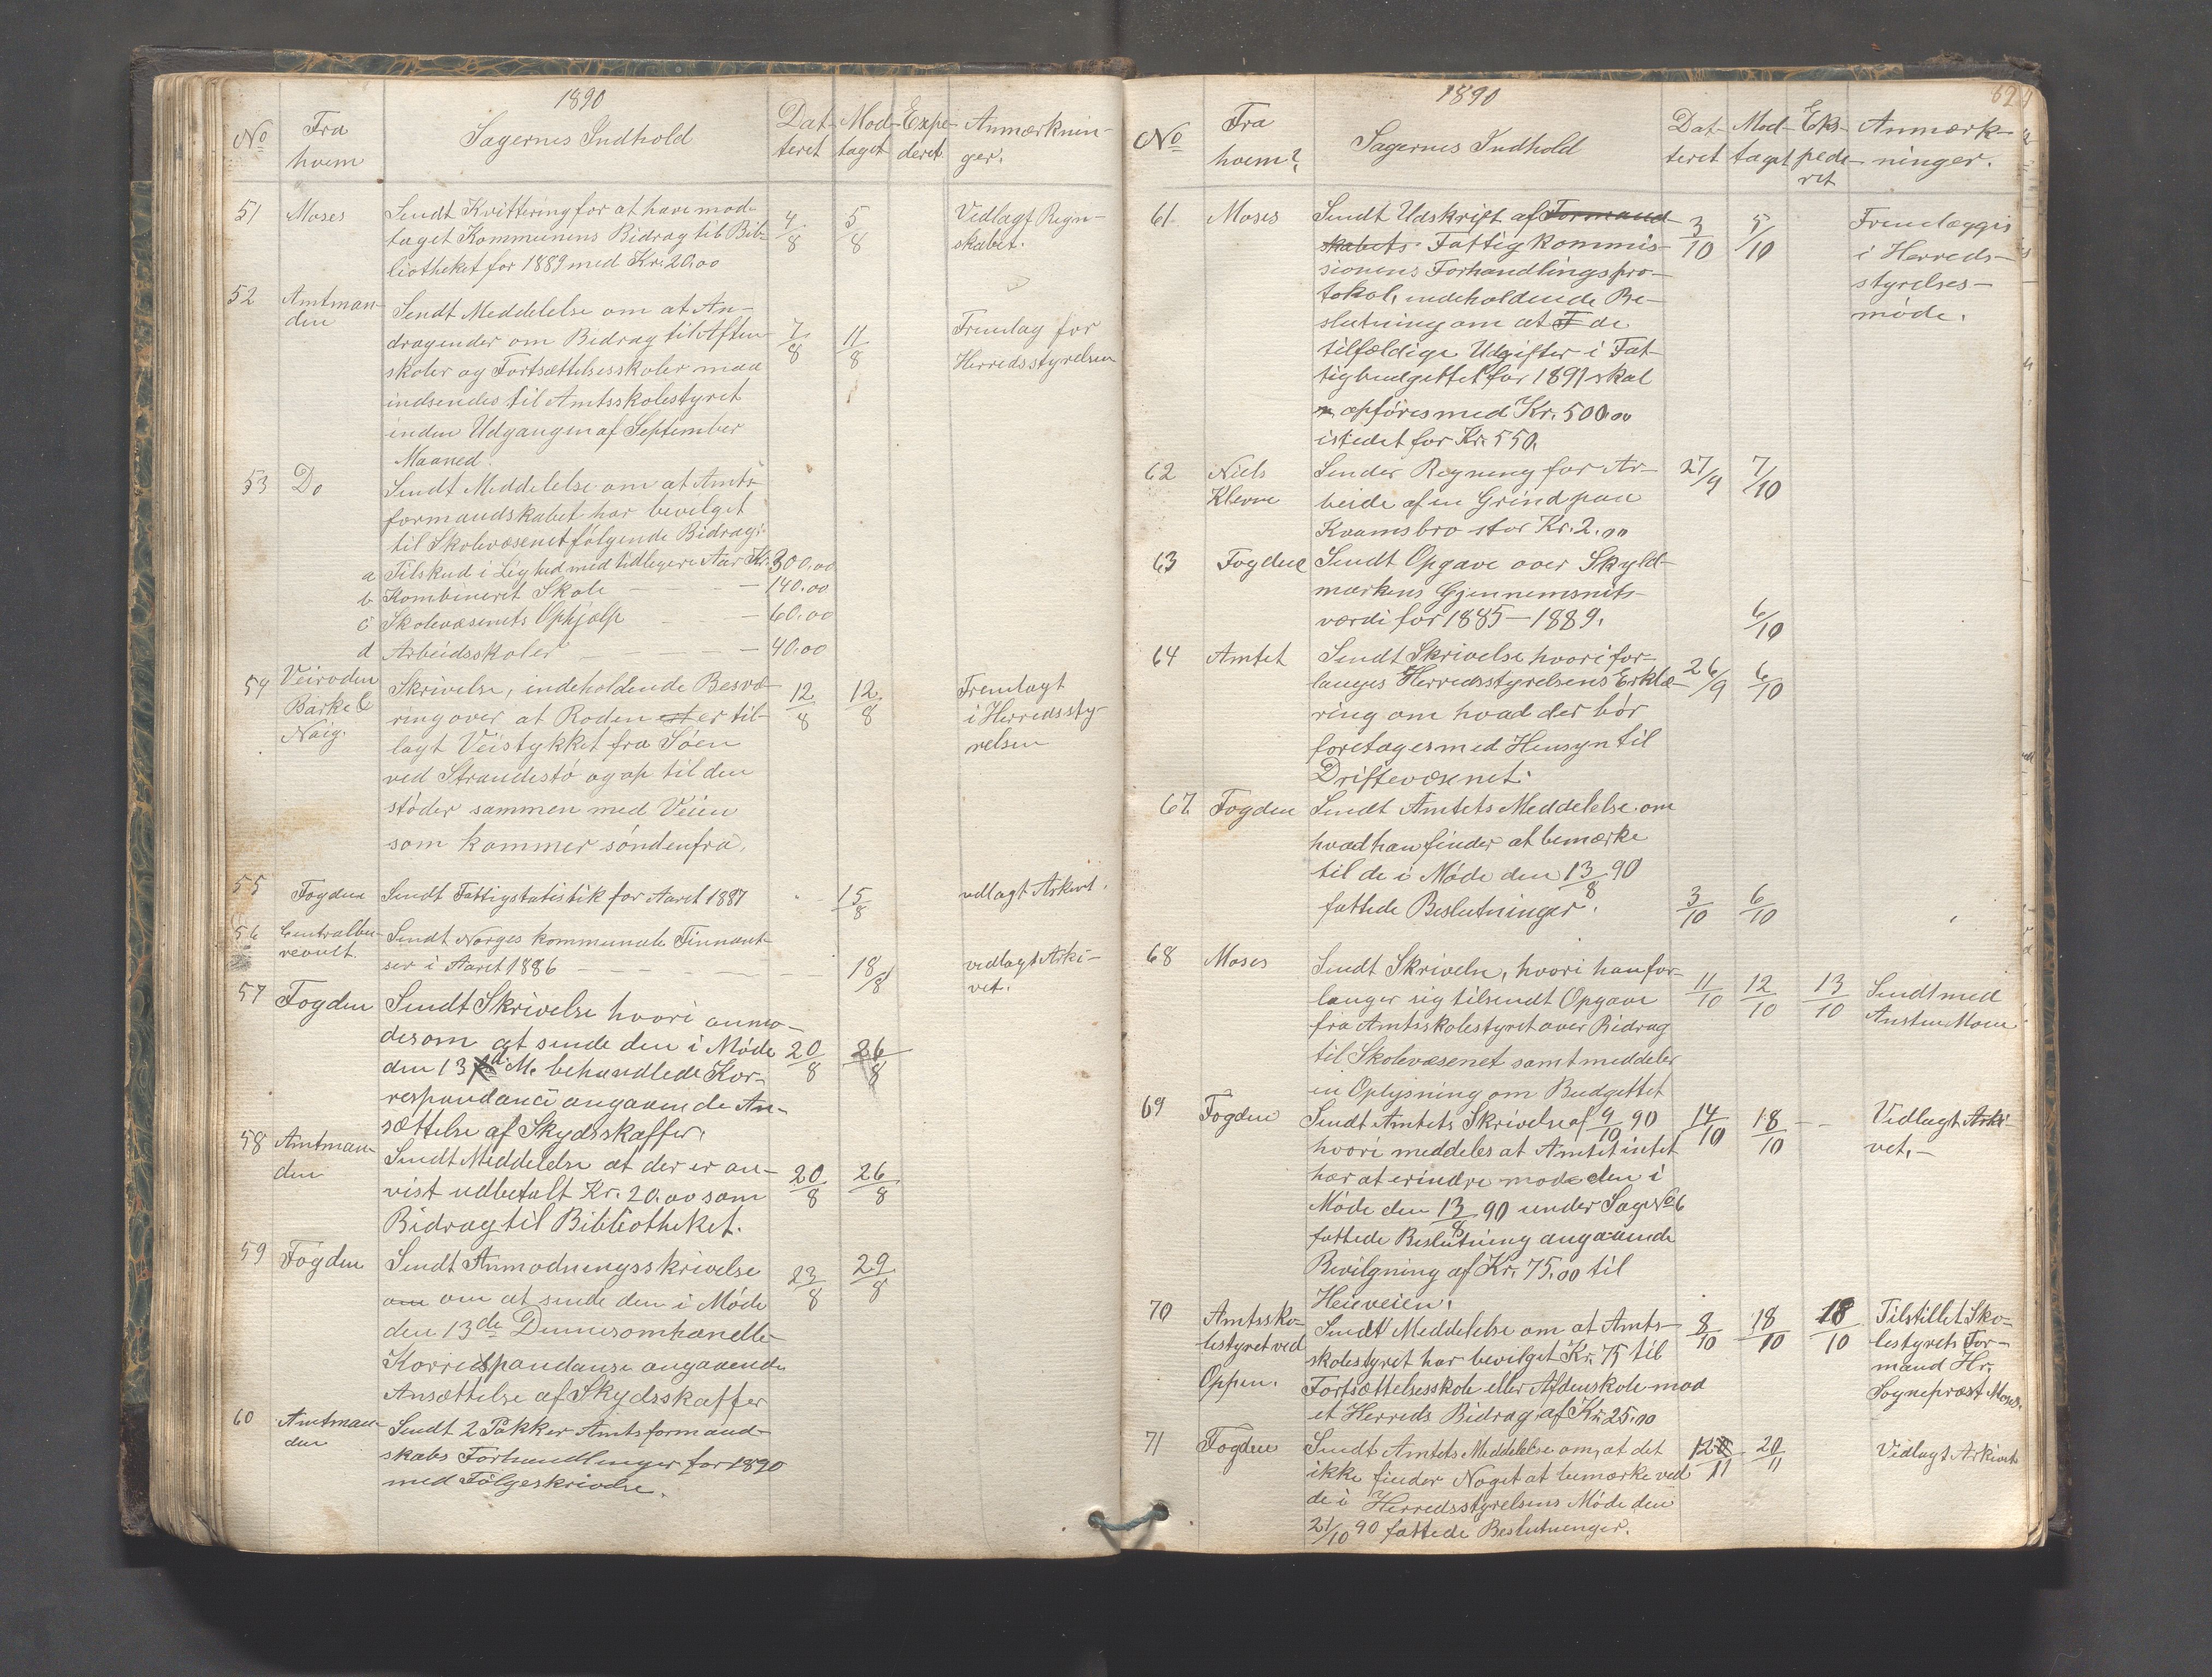 1890
No
Fra
hvem
Sagernes Indhold
Dat-
teret
Mod-
taget
Expe-
deret
Anmærknin-
ger.
51 Moses Sendt Kvittering for at have mod- 4/8 5/8 Vedlagt Regn-
taget Kommunens Bidrag til Bib- skabet.
liotheket for 1889 med Kr. 20.00
52 Amtman- Sendt Meddelelse om at An-
den dragender om Bidrag til Aften- 7/8 11/8 Fremlag for
skoler og Fortsættelsesskoler maa Herredsstyrelsen
indsendes til Amtsskolestyret
inden Udgangen af September
Maaned.
53 Do Sendt Meddelelse om at Amts-
formandskabet har bevilget
til Skolevæsenet følgende Bidrag:
a Tilskud i Lighed med tidligere Aar Kr. 300.00
b Kombineret Skole — — — 140.00
c Skolevæsenets Ophjælp — — 60.00
d Arbeidsskoler — — — — 40.00
54 Veiroden Skrivelse, indeholdende Besvæ- 12/8 12/8 Fremlagt
Barke & ring over at Roden er til- i Herredssty-
Naig. lagt Veistykket fra Søen relsen
ved Strandestø og op til den
støder sammen med Veien
som kommer søndenfra.
55 Fogden Sendt Fattigstatistik for Aaret 1887 15/8 vedlagt Arkivet.
56 Centralbu- Sendt Norges kommunale Finnant-
reault. ser i Aaret 1886 — — — — 18/8 vedlagt Arki-
vet.
57 Fogden Sendt Skrivelse hvori anmo-
des om at sende den i Møde 20/8 26/8
den 13 d. M. behandlede Kor-
respondance angaaende An-
sættelse af Skydsskaffer.
58 Amtman- Sendt Meddelelse at der er an-
den vist udbetalt Kr. 20.00 som 20/8 26/8
Bidrag til Bibliotheket.
59 Fogden Sendt Anmodningsskrivelse 23/8 29/8
om om at sende den i Møde
den 13de Dennes omhandlte
Korrespondanse angaaende
Ansættelse af Skydsskaffer
60 Amtman- Sendt 2 Pakker Amtsformand-
den skabs Forhandlinger for 1890
med Følgeskrivelse.
1890
62
No
Fra
hvem?
Sagernes Indhold
Dat-
teret
Mod-
taget
Eks-
pede-
ret
Anmærk-
ninger.
61 Moses Sendt Udskrift af Formand- 3/10 5/10 Fremlægges
skabets Fattigkommis- i Herreds-
sionens Forhandlingspro- styrelses-
tokol, indeholdende Be- møde.
slutning om at de
tilfældige Udgifter i Fat-
tigbudgettet for 1891 skal
opføres med Kr. 500.00
istedet for Kr. 550.
62 Niels Sender Regning for Ar- 27/9 7/10
Klevne beide af en Grind paa
Kvamsbro stor Kr. 2.00
63 Fogden Sendt Opgave over Skyld-
markens Gjennemsnits-
værdi for 1885—1889. 6/10
64 Amtet Sendt Skrivelse hvori for- 26/9 6/10
langes Herredsstyrelsens Erklæ-
ring om hvad der bør
foretages med Hensyn til
Driftevæsenet.
67 Fogden Sendt Amtets Meddelelse om
hvad han finder at bemærke
til de i Møde den 13/8 90
fattede Beslutninger. 3/10 6/10
68 Moses Sendt Skrivelse, hvori han for-
langer sig tilsendt Opgave 11/10 12/10 13/10 Sendt med
fra Amtsskolestyret over Bidrag
til Skolevæsenet samt meddeler
en Oplysning om Budgettet
69 Fogden Sendt Amtets Skrivelse af 9/10 90 14/10 18/10 — Vedlagt Arki-
hvori meddeles at Amtet intet vet.—
har at erindre mod den i
Møde den 13/8 90 under Sag No 6
fattede Beslutning angaaende
Bevilgning af Kr. 75.00 til
Heieveien.
70 Amtssko- Sendt Meddelelse om at Amts- 8/10 18/10 18/10 Tilstillet Sko-
lestyret ved skolestyret har bevilget Kr. 75 til lestyrets For-
Oppen. Fortsættelsesskole eller Aftenskole mod mand Hr.
et Herreds Bidrag af Kr. 25.00 Sogneprest Moses.
71 Fogden Sendt Amtets Meddelelse om, at det 12/11 20/11 Vedlagt Arkivet
ikke finder Noget at bemærke ved
de i Herredsstyrelsens Møde den
21/10 90 fattede Beslutninger.